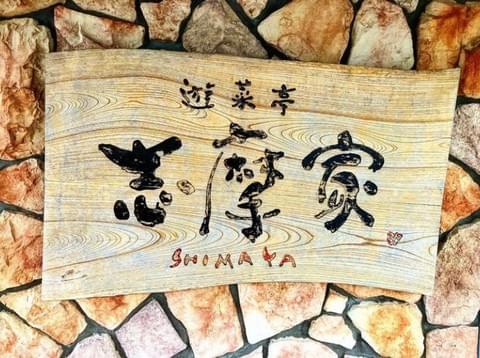 遊菜亭
志摩家
SHIMAYA